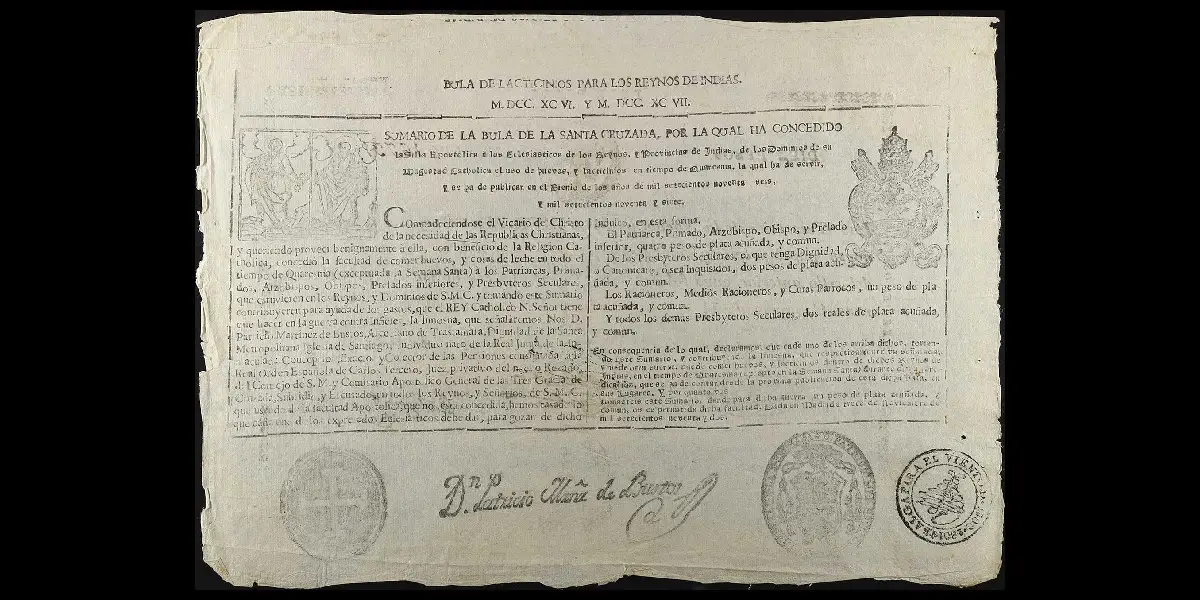 BULA DE LACTICINIOS PARA LOS REYNOS DE INDIAS.
M. DCC. XC VI. Y M. DCC. XC VII.
SUMARIO DE LA BULA DE LA SANTA CRUZADA, POR LA QUAL HA CONCEDIDO
la Silla Apostolica a los Eclesiasticos de los Reynos, y Provincias de Indias, de los Dominios de su
Magestad Catholica el uso de huevos, y lacticinios en tiempo de Quaresma, la qual ha de servir,
y se ha de publicar en el Bienio de los años de mil setecientos noventa y seis,
y mil setecientos noventa y siete.
Compadeciendose el Vicario de Christo
de la necesidad de las Republicas Christianas,
y queriendo proveer benignamente a ella, con beneficio de la Religion Ca-
tholica, concedio la facultad de comer huevos, y cosas de leche en todo el
tiempo de Quaresma (exceptuada la Semana Santa) a los Patriarcas, Prima-
dos, Arzobispos, Obispos, Prelados inferiores, y Presbyteros Seculares,
que estuvieren en los Reynos, y Dominios de S.M.C. y tomando este Sumario
contribuyeren para ayuda de los gastos, que el REY Catholico N. Señor tiene
que hacer en la guerra contra Infieles, la limosna, que señalaremos Nos D.
Patricio Martinez de Bustos, Arcediano de Trastamara, Dignidad de la Santa
Metropolitana Iglesia de Santiago, Individuo nato de la Real Junta de la
Inmaculada Concepcion,
Real Orden Española de Carlos Tercero, Juez privativo del
del Consejo de S.M. y Comisario Apostolico General de las Tres Gracias de
Cruzada, Subsidio, y Escusado en todos los Reynos, y Señorios de S.M.C.
que usando de la facultad Apostolica, que nos esta concedida, hemos tasado lo
que cada uno de los expresados Eclesiasticos debe dar, para gozar de dicho
Indulto, en esta forma.
El Patriarca, Primado, Arzobispo, Obispo, y Prelado
inferior, quatro pesos de plata acuñada, y comun.
De los Presbyteros Seculares, el que tenga Dignidad,
o Canonicato, o sea Inquisidor, dos pesos de plata acu-
ñada, y comun.
Los Racioneros, Medios Racioneros, y Curas Parrocos, un peso de pla-
ta acuñada, y comun.
Y todos los demas Presbyteros Seculares, dos reales de plata acuñada,
y comun.
En consequencia de lo qual, declaramos, que cada uno de los arriba dichos, toman-
do este Sumario, y contribuyendo la limosna, que respectivamente va señalada,
puede comer huevos, y lacticinios dentro de dichos Reynos de
Indias, en el tiempo de Quaresma (excepto en la Semana Santa) durante
que se ha de contar desde la proxima publicacion de esta dicha Bula, en
sus Lugares. Y por quanto vos
tomasteis este Sumario, dando para dicha guerra un peso de plata acuñada, y
comun, os es permitido dicha facultad. Dada en Madrid a trece de Noviembre de
mil setecientos noventa y dos.
Dn. Patricio Marñ de Bustos
VALGA PARA EL VIENIO DE 1800-1801